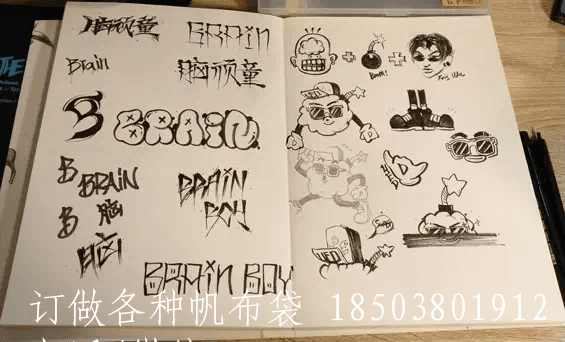 脑顽童
BRAIN
Brain
脑顽童
B
BRAIN
B
BRAIN
B
脑
BRAIN
BOY
BRAIN BOY
BOOM!
UFO
订做各种帆布袋 18503801912